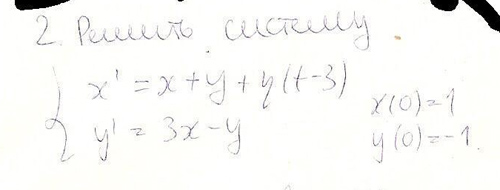 2. Решить систему
x' = x + y + η(t-3)
y' = 3x - y
x(0) = 1
y(0) = -1.